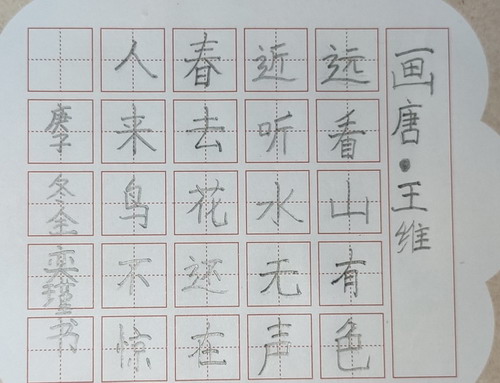 画唐·王维
远看山有色
近听水无声
春去花还在
人来鸟不惊
庚子冬全奕瑾书